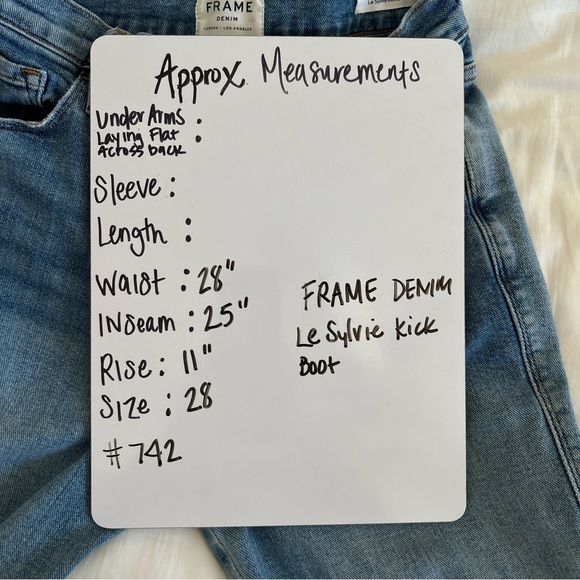 FRAME
DENIM
LONDON • LOS ANGELES
Approx Measurements
Under Arms :
Laying Flat :
Across back
Sleeve :
Length :
Waist : 28"
Inseam : 25"
Rise : 11"
Size : 28
#742
FRAME DENIM
Le Sylvie Kick
Boot